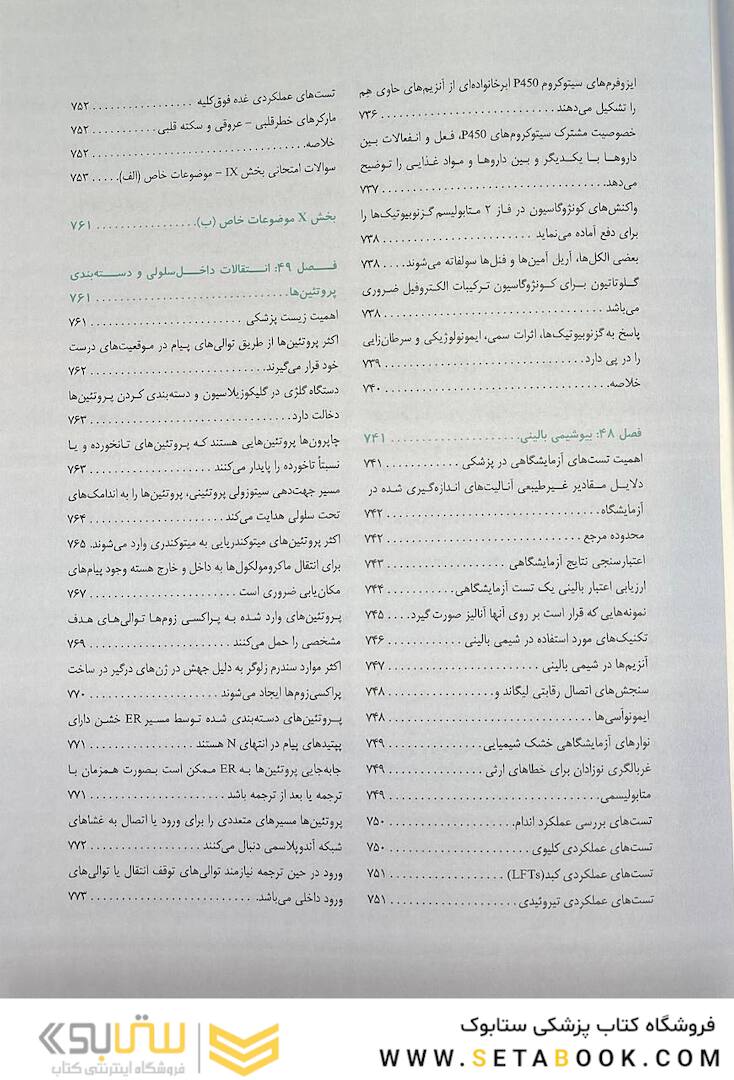 ایزوفرم‌های سیتوکروم P450 ابرخانواده‌ای از آنزیم‌های حاوی هِم
را تشکیل می‌دهند............................. ۷۳۶
خصوصیت مشترک سیتوکروم‌های P450، فعل و انفعالات بین
داروها با یکدیگر و بین داروها و مواد غذایی را توضیح
می‌دهد..................................... ۷۳۷
واکنش‌های کونژوگاسیون در فاز ۲ متابولیسم گزنوبیوتیک‌ها را
برای دفع آماده می‌نماید......................... ۷۳۸
بعضی الکل‌ها، آریل آمین‌ها و فنل‌ها سولفاته می‌شوند.... ۷۳۸
گلوتاتیون برای کونژوگاسیون ترکیبات الکتروفیل ضروری
می‌باشد..................................... ۷۳۸
پاسخ به گزنوبیوتیک‌ها، اثرات سمی، ایمونولوژیکی و سرطان‌زایی
را در پی دارد................................. ۷۳۹
خلاصه..................................... ۷۴۰
فصل ۴۸: بیوشیمی بالینی...................... ۷۴۱
اهمیت تست‌های آزمایشگاهی در پزشکی............ ۷۴۱
دلایل مقادیر غیرطبیعی آنالیت‌های اندازه‌گیری شده در
آزمایشگاه................................... ۷۴۲
محدوده مرجع................................ ۷۴۲
اعتبارسنجی نتایج آزمایشگاهی.................... ۷۴۳
ارزیابی اعتبار بالینی یک تست آزمایشگاهی........... ۷۴۴
نمونه‌هایی که قرار است بر روی آنها آنالیز صورت گیرد.... ۷۴۵
تکنیک‌های مورد استفاده در شیمی بالینی............ ۷۴۶
آنزیم‌ها در شیمی بالینی......................... ۷۴۷
سنجش‌های اتصال رقابتی لیگاند و................. ۷۴۸
ایمونوآسی‌ها................................. ۷۴۸
نوارهای آزمایشگاهی خشک شیمیایی............... ۷۴۹
غربالگری نوزادان برای خطاهای ارثی............... ۷۴۹
متابولیسمی................................. ۷۴۹
تست‌های بررسی عملکرد اندام.................... ۷۵۰
تست‌های عملکردی کلیوی....................... ۷۵۰
تست‌های عملکردی کبد(LFTs).................. ۷۵۱
تست‌های عملکردی تیروئیدی.................... ۷۵۱
تست‌های عملکردی غده فوق‌کلیه................. ۷۵۲
مارکرهای خطرقلبی – عروقی و سکته قلبی........... ۷۵۲
خلاصه..................................... ۷۵۲
سوالات امتحانی بخش IX – موضوعات خاص (الف)..... ۷۵۳
بخش X موضوعات خاص (ب)................. ۷۶۱
فصل ۴۹: انتقالات داخل‌سلولی و دسته‌بندی
پروتئین‌ها.................................. ۷۶۱
اهمیت زیست پزشکی.......................... ۷۶۱
اکثر پروتئین‌ها از طریق توالی‌های پیام در موقعیت‌های درست
خود قرار می‌گیرند............................. ۷۶۲
دستگاه گلژی در گلیکوزیلاسیون و دسته‌بندی کردن پروتئین‌ها
دخالت دارد.................................. ۷۶۳
چاپرون‌ها پروتئین‌هایی هستند که پروتئین‌های تانخورده و یا
نسبتاً تاخورده را پایدار می‌کنند.................... ۷۶۳
مسیر جهت‌دهی سیتوزولی پروتئینی، پروتئین‌ها را به اندامک‌های
تحت سلولی هدایت می‌کند...................... ۷۶۴
اکثر پروتئین‌های میتوکندریایی به میتوکندری وارد می‌شوند. ۷۶۵
برای انتقال ماکرومولکول‌ها به داخل و خارج هسته وجود پیام‌های
مکان‌یابی ضروری است......................... ۷۶۷
پروتئین‌های وارد شده به پراکسی زوم‌ها توالی‌های هدف
مشخصی را حمل می‌کنند....................... ۷۶۹
اکثر موارد سندرم زلوگر به دلیل جهش در ژن‌های درگیر در ساخت
پراکسی‌زوم‌ها ایجاد می‌شوند..................... ۷۷۰
پروتئین‌های دسته‌بندی شده توسط مسیر ER خشن دارای
پپتیدهای پیام در انتهای N هستند................. ۷۷۱
جابه‌جایی پروتئین‌ها به ER ممکن است بصورت همزمان با
ترجمه یا بعد از ترجمه باشد...................... ۷۷۱
پروتئین‌ها مسیرهای متعددی را برای ورود یا اتصال به غشاهای
شبکه آندوپلاسمی دنبال می‌کنند.................. ۷۷۲
ورود در حین ترجمه نیازمند توالی‌های توقف انتقال یا توالی‌های
ورود داخلی می‌باشد........................... ۷۷۳
فروشگاه کتاب پزشکی ستابوک
WWW.SETABOOK.COM
ستابوک
فروشگاه اینترنتی کتاب